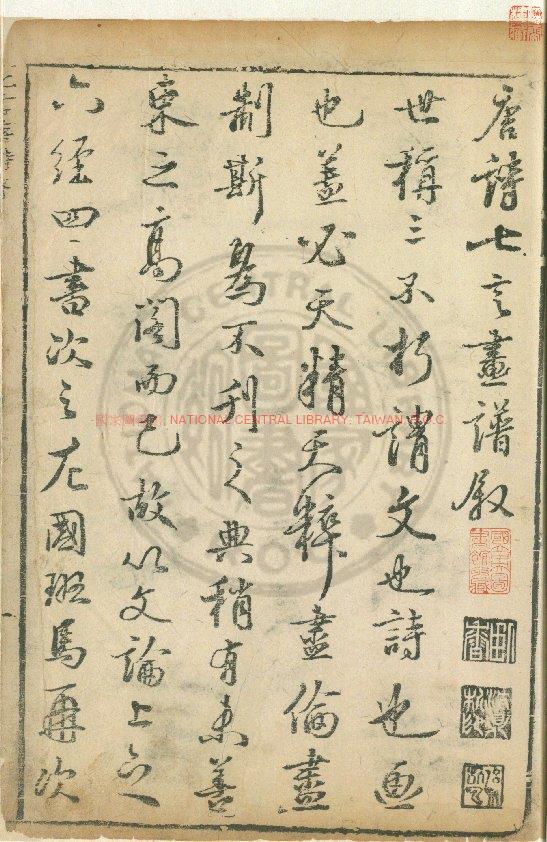 唐詩七言畫譜叙
世稱三不朽謂文也詩也画
也盖必天精天粹盡倫盡
制斯為不刊之典稍有未善
束之高阁而已故以文論上之
六經四書次之左國班馬再次
國家圖書館, NATIONAL CENTRAL LIBRARY, TAIWAN, R.O.C.